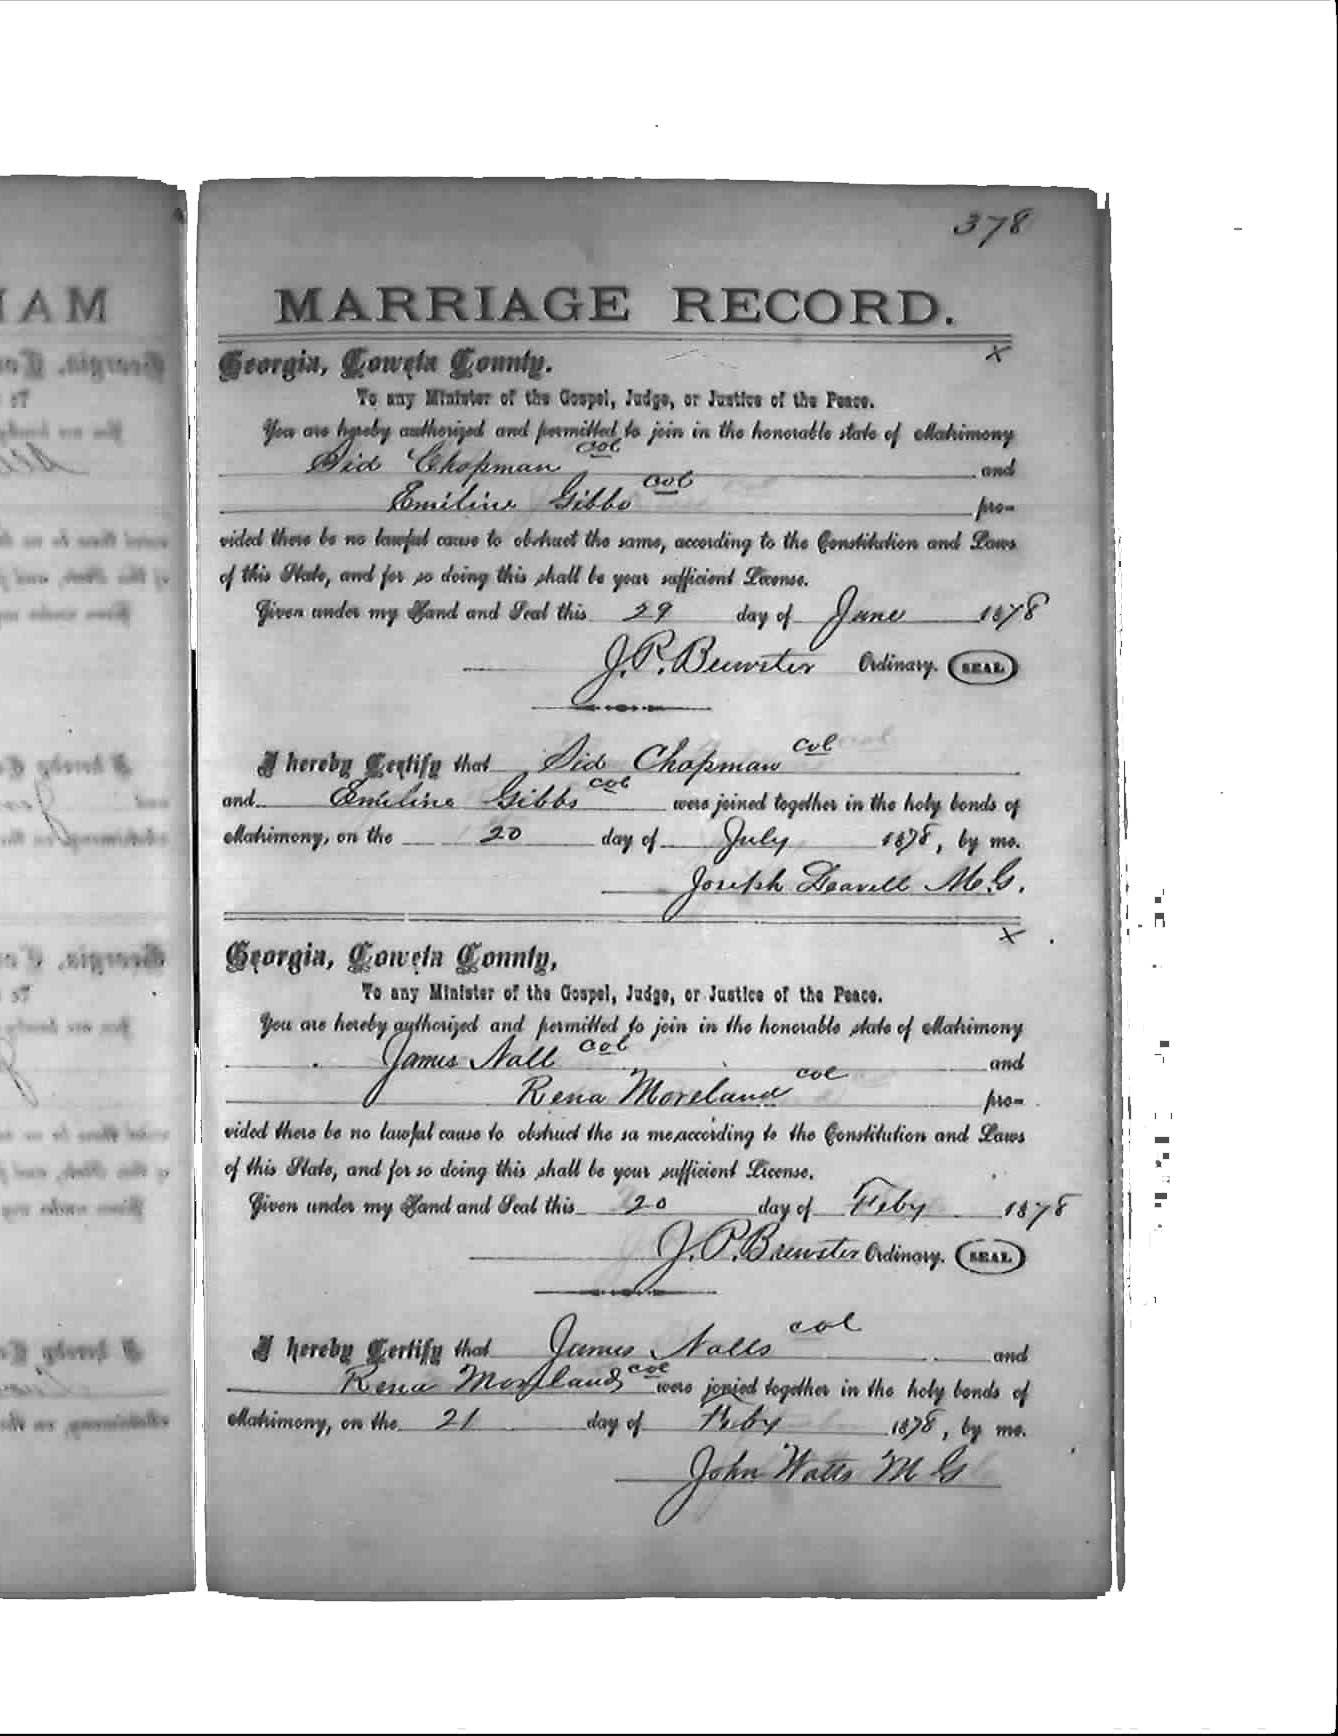 378
MARRIAGE RECORD.
Georgia, Coweta County. x
To any Minister of the Gospel, Judge, or Justice of the Peace.
You are hereby authorized and permitted to join in the honorable state of Matrimony
Sid Chapman col and
Emiline Gibbs col pro-
vided there be no lawful cause to obstruct the same, according to the Constitution and Laws
of this State, and for so doing this shall be your sufficient License.
Given under my Hand and Seal this 29 day of June 1878
J. P. Brewster Ordinary. SEAL
I hereby Certify that Sid Chapman col
and Emiline Gibbs col were joined together in the holy bonds of
Matrimony, on the 20 day of July 1878, by me.
Joseph Deavell M.G.
x
Georgia, Coweta County,
To any Minister of the Gospel, Judge, or Justice of the Peace.
You are hereby authorized and permitted to join in the honorable state of Matrimony
James Nall col and
Rena Moreland col pro-
vided there be no lawful cause to obstruct the sa me,according to the Constitution and Laws
of this State, and for so doing this shall be your sufficient License.
Given under my Hand and Seal this 20 day of Feby 1878
J. P. Brewster Ordinary. SEAL
I hereby Certify that James Nalls col and
Rena Moreland col were jonied together in the holy bonds of
Matrimony, on the 21 day of Feby 1878, by me.
John Watts M G